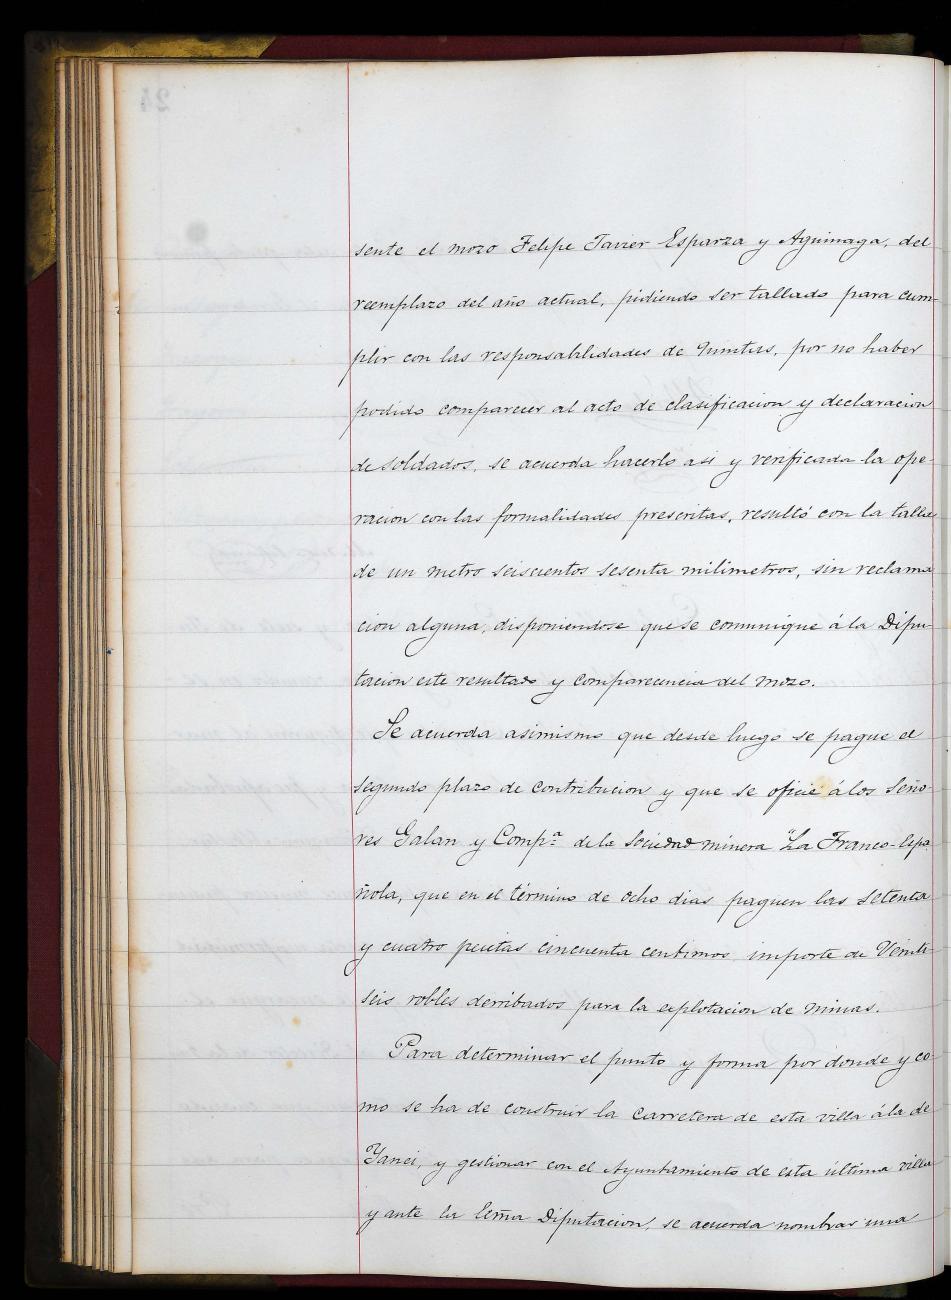 sente el mozo Felipe Javier Esparza y Aguinaga, del
reemplazo del año actual, pidiendo ser tallado para cum-
plir con las responsabilidades de quintas, por no haber
podido comparecer al acto de clasificacion y declaracion
de soldados, se acuerda hacerlo asi y verificada la ope-
racion con las formalidades prescritas, resultó con la talla
de un metro seiscientos sesenta milimetros, sin reclama
cion alguna, disponiendose que se comunique á la Dipu-
tacion este resultado y comparecencia del mozo.
Se acuerda asimismo que desde luego se pague el
segundo plazo de contribucion y que se oficie á los Seño-
res Galan y Compª de la Sociedad minera "La Franco-Espa-
ñola, que en el término de ocho dias paguen las setenta
y cuatro pesetas cincuenta centimos importe de Veinte
seis robles derribados para la explotacion de minas.
Para determinar el punto y forma por donde y co-
mo se ha de construir la carretera de esta villa á la de
Yanci, y gestionar con el Ayuntamiento de esta última villa
y ante la Excma Diputacion, se acuerda nombrar una